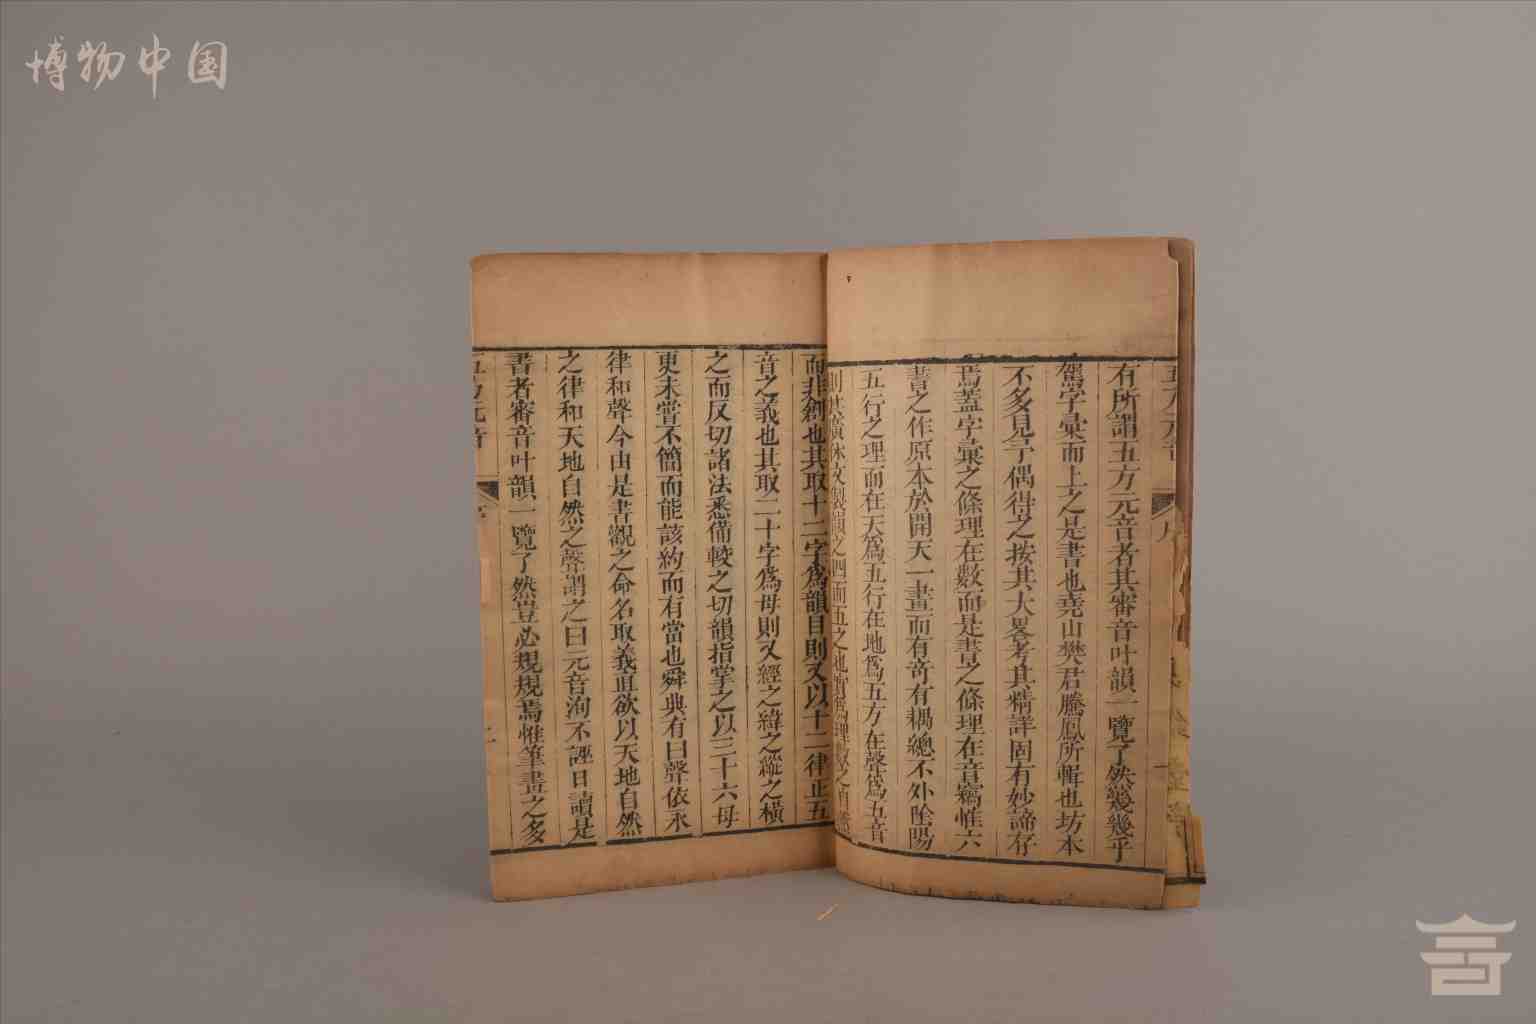 博物中国
五方元音
序
有所謂五方元音者其審音叶韻一覽了然幾幾乎
駕字彙而上之是書也堯山樊君騰鳳所輯也坊本
不多見予偶得之按其大畧考其精詳固有妙諦存
焉蓋字彙之條理在數而是書之條理在音竊惟六
書之作原本於開天一畫而有奇有耦總不外陰陽
五行之理而在天爲五行在地爲五方在聲爲五音
則其廣休文製韻之四而五之也實爲理數之自然
而非創也其取十二字爲韻目則又以十二律正五
音之義也其取二十字爲母則又經之緯之縱之橫
之而反切諸法悉備較之切韻指掌之以三十六母
更未嘗不簡而能該約而有當也舜典有曰聲依永
律和聲今由是書觀之命名取義直欲以天地自然
之律和天地自然之聲謂之曰元音洵不誣日讀是
書者審音叶韻一覽了然豈必規規焉惟筆畫之多
五方元音
序
二